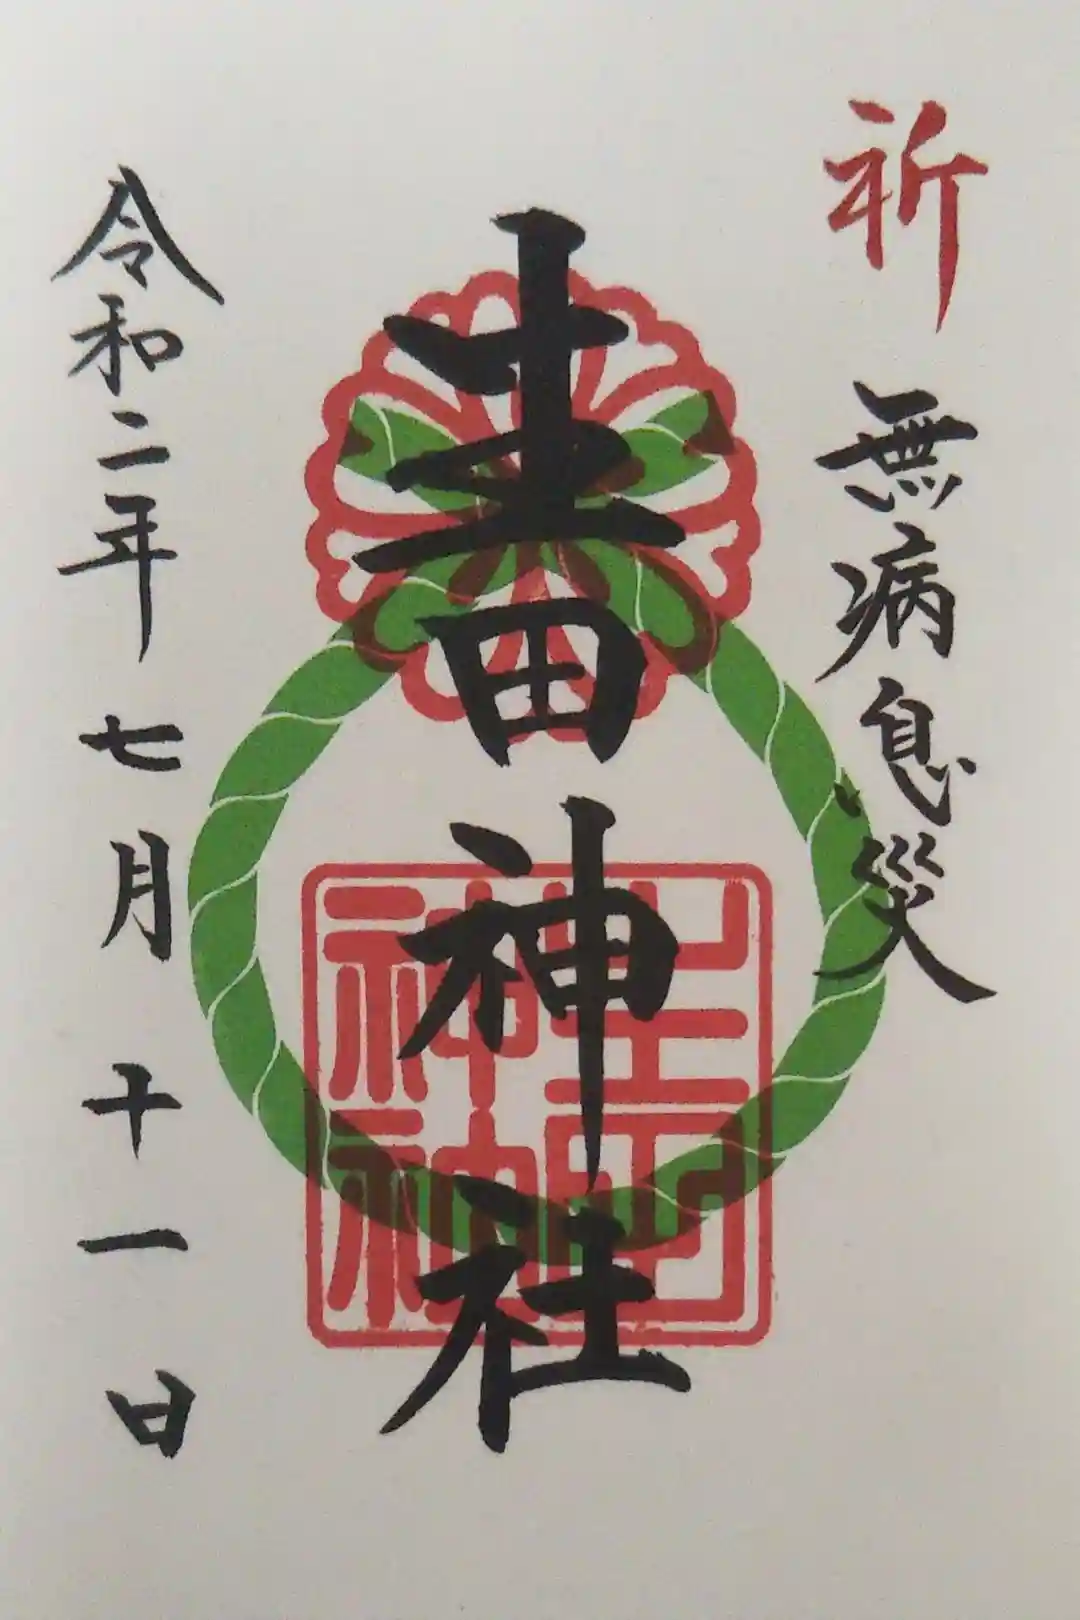 祈 無病息災
生田神社
令和二年七月十一日